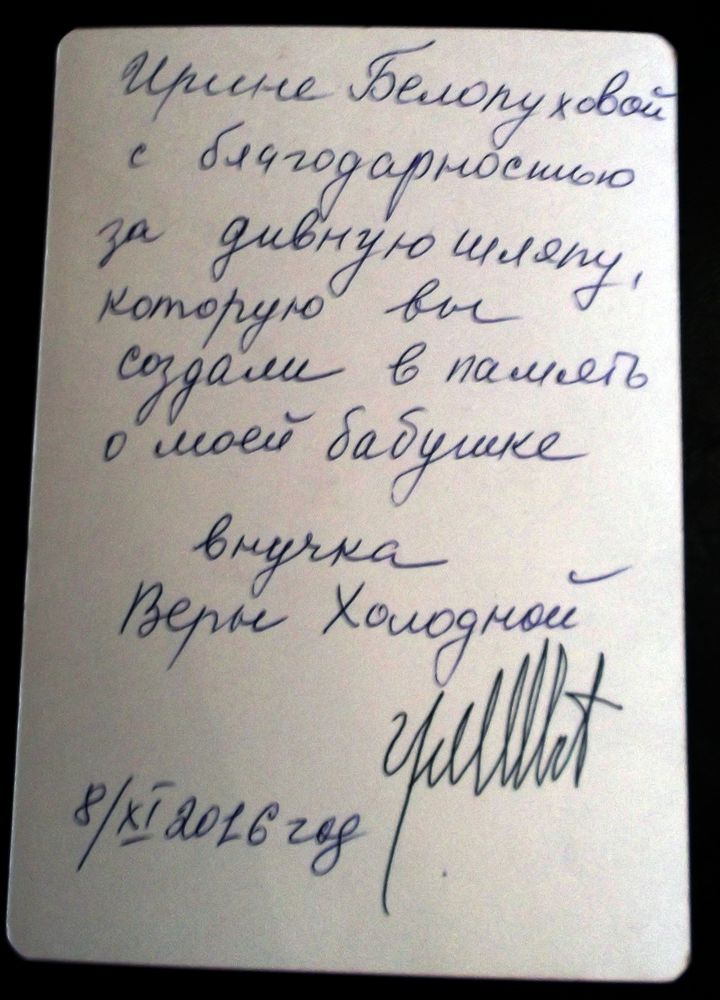 Ирине Белопуховой
с благодарностью
за дивную шляпу,
которую вы
создали в память
о моей бабушке
внучка
Веры Холодной
8/XI 2016 год